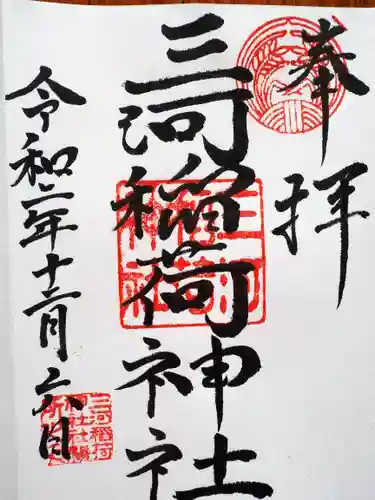 奉拝
三河稲荷神社
令和二年十二月六日
三河稲荷
神社社務
所